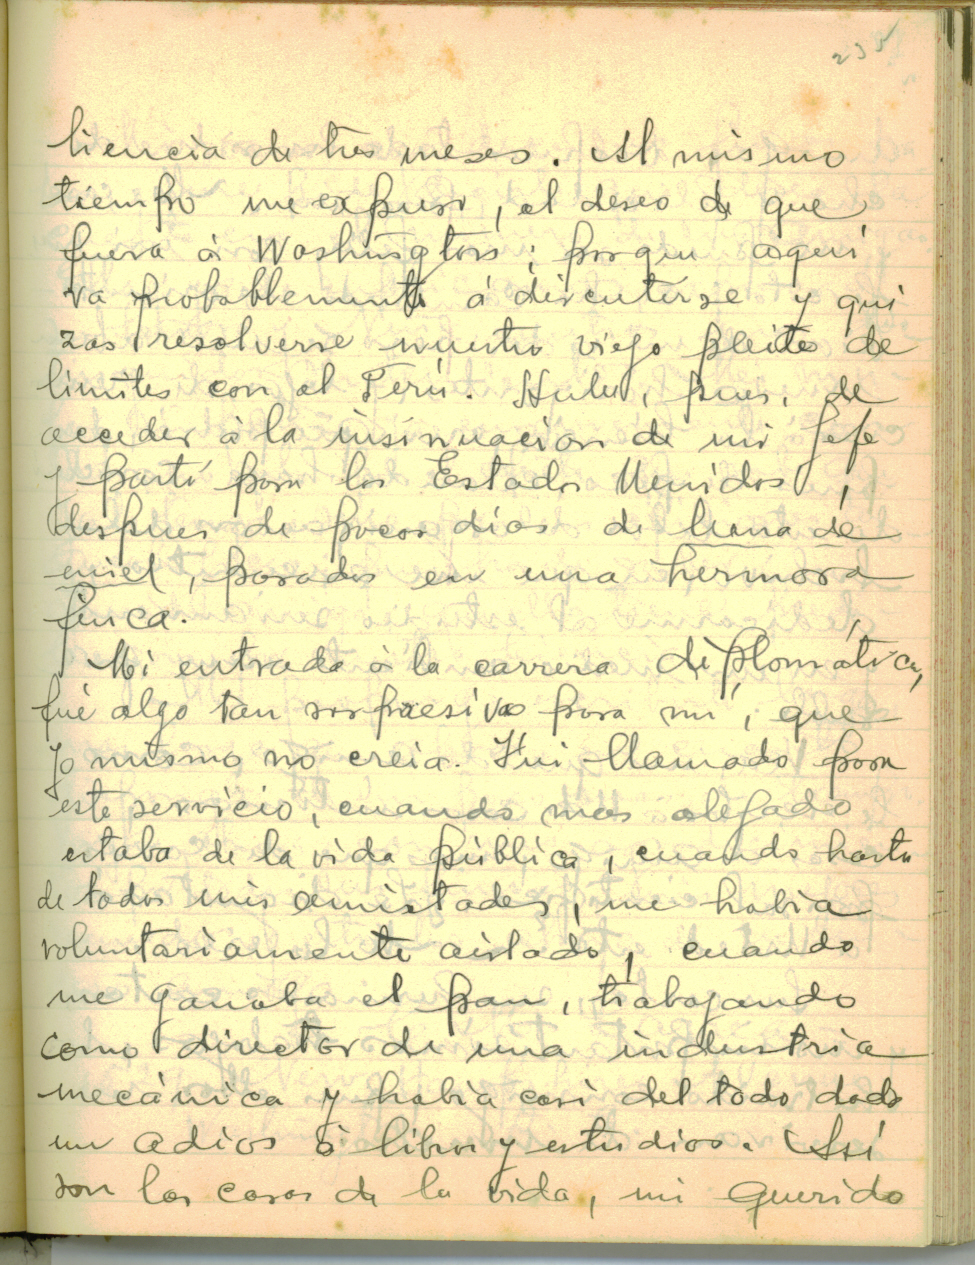 235
licencia de tres meses. Al mismo
tiempo me expuso, el deseo de que
fuera á Washington; porque aqui
va probablemente á discutirse y qui
zas resolverse nuestro viejo pleito de
limites con el Perú. Hube, pues, de
acceder á la insinuacion de mi Jefe
y partí para los Estados Unidos,
despues de pocos dias de luna de
miel, pasados en una hermosa
finca.
Mi entrada á la carrera diplomática,
fué algo tan sorpresivo para mi, que
yo mismo no creia. Fui llamado para
este servicio, cuando mas alejado
estaba de la vida pública, cuando hasta
de todas mis amistades, me habia
voluntariamente aislado, cuando
me ganaba el pan, trabajando
como director de una industria
mecánica y habia casi del todo dado
un adios á libros y estudios. Así
son las cosas de la vida, mi querido